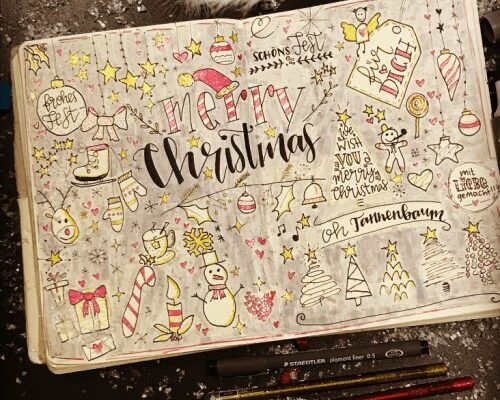 frohes
Fest
SCHÖNS Fest
für
DICH
merry
Christmas
we
WISH
YOU a
merry
Christmas
mit
LIEBE
gemacht
oh Tannenbaum
STAEDTLER pigment liner 0.5